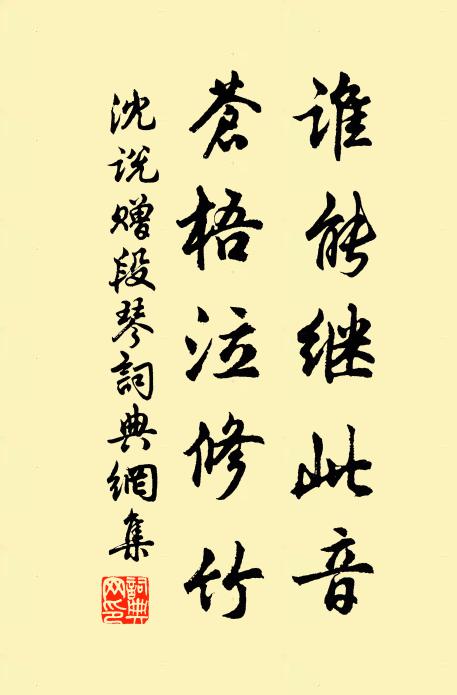 谁能继此音
苍梧泣修竹
沈说赠段琴詞典網集
詞典网印